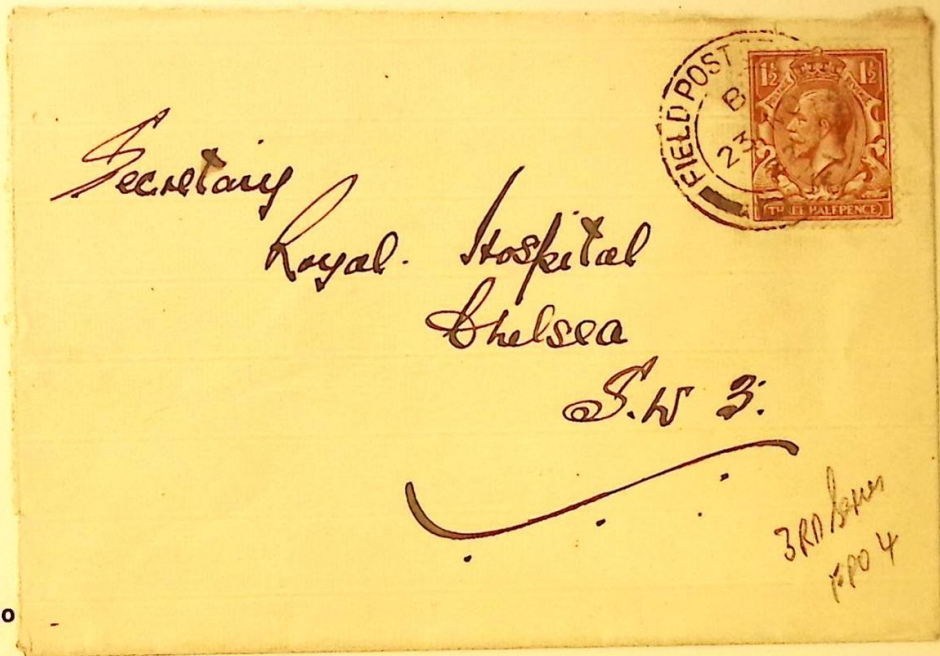 FIELD POST
B
23
1½ 1½
THREE HALFPENCE
Secretary
Royal. Hospital
Chelsea
S.W 3.
3RD Series
FPO 4
o